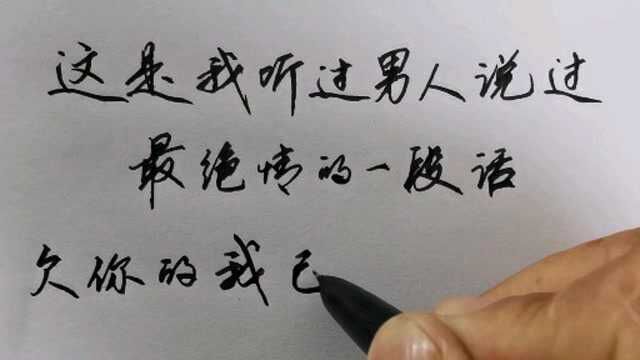 这是我听过男人说过
最绝情的一段话
欠你的我已